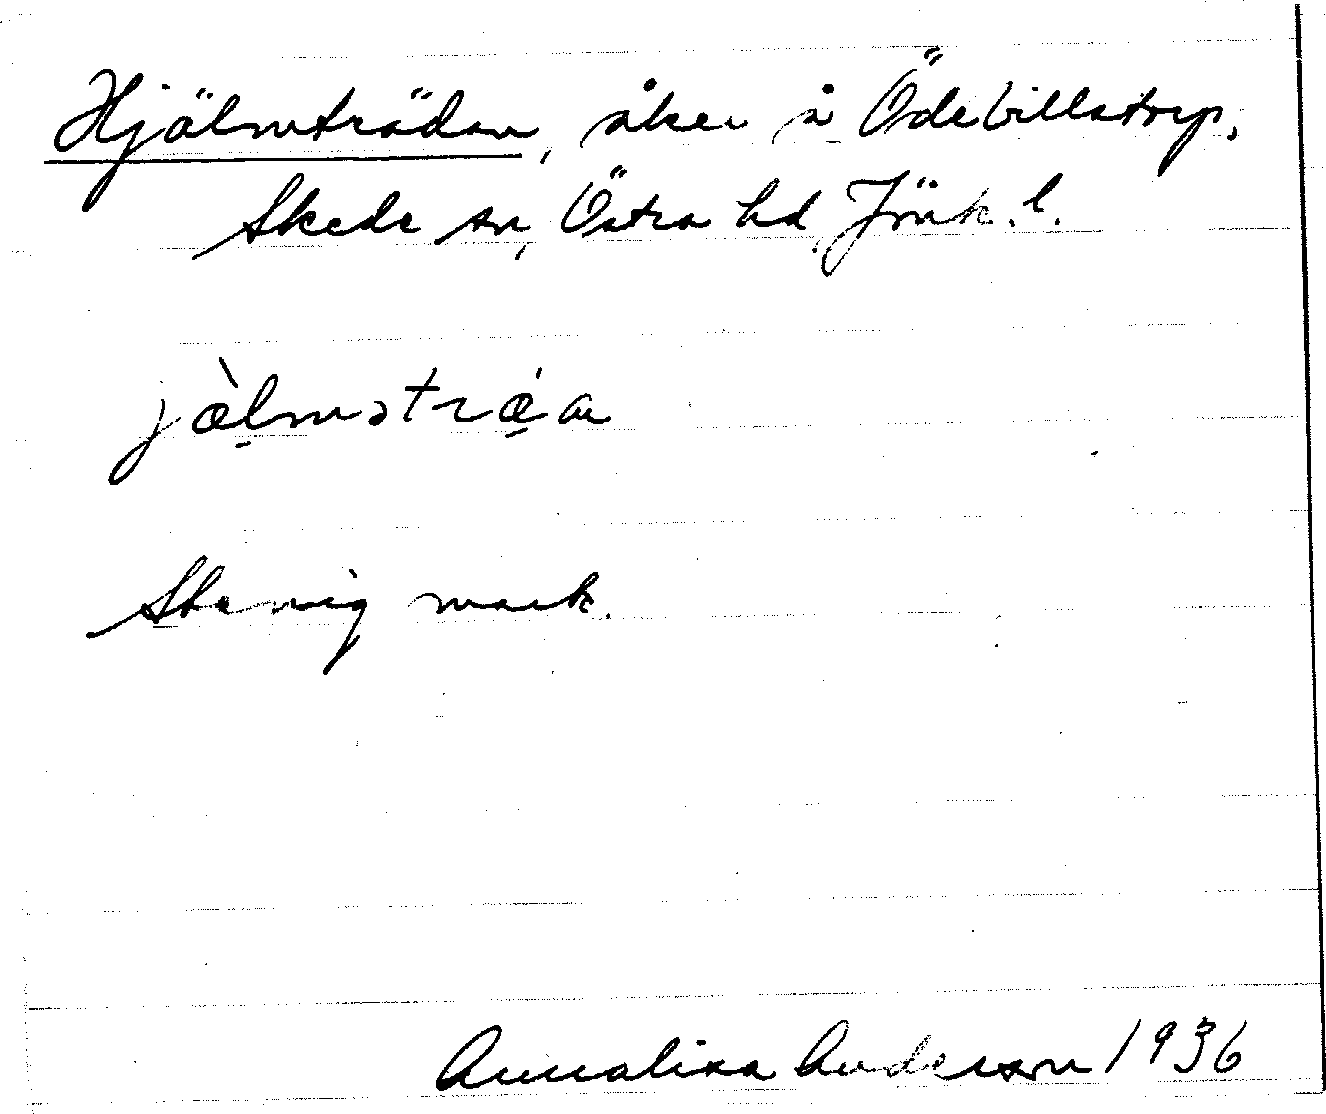 Hjälmträdan, åker å Ödebillstorp.
Skede sn, Östra hd, Jönk. l.
jæ̀lmətrǽa
Stenig mark.
Annalisa Anderson 1936